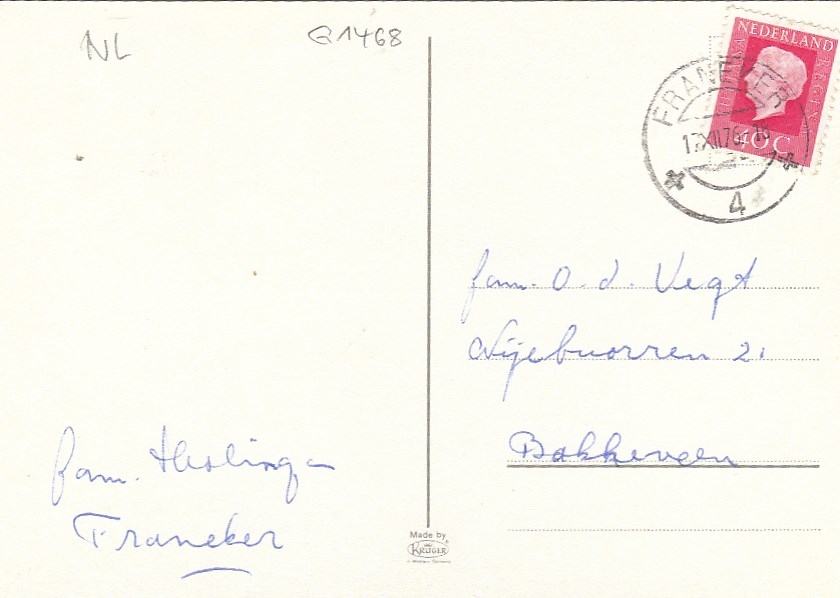 NL
G1468
NEDERLAND
JULIANA REGINA
40c
FRANEKER
17 XII 76
4
fam. O. d. Vegt
Nijebuorren 21
Bakkeveen
fam.
Franeker
Made by
KRÜGER